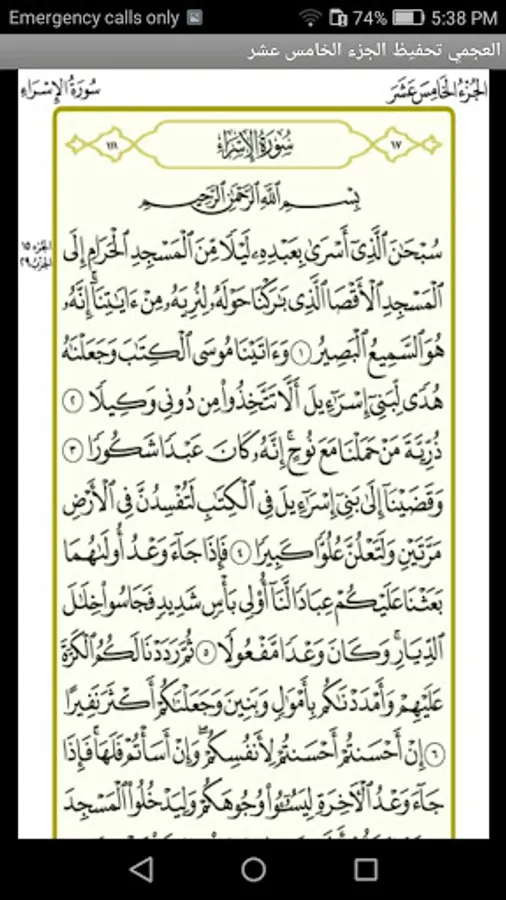 Emergency calls only 74% 5:38 PM
العجمي تحفيظ الجزء الخامس عشر
الجُزْءُ الخَامِسَ عَشَرَ سُورَةُ الإِسْرَاءِ
١٧ سُورَةُ الإِسْرَاءِ ١١١
بِسْمِ ٱللَّهِ ٱلرَّحْمَٰنِ ٱلرَّحِيمِ
سُبْحَٰنَ ٱلَّذِىٓ أَسْرَىٰ بِعَبْدِهِۦ لَيْلًا مِّنَ ٱلْمَسْجِدِ ٱلْحَرَامِ إِلَى
الجزء ١٥
الحزب ٢٩
ٱلْمَسْجِدِ ٱلْأَقْصَا ٱلَّذِى بَٰرَكْنَا حَوْلَهُۥ لِنُرِيَهُۥ مِنْ ءَايَٰتِنَآ ۚ إِنَّهُۥ
هُوَ ٱلسَّمِيعُ ٱلْبَصِيرُ ١ وَءَاتَيْنَا مُوسَى ٱلْكِتَٰبَ وَجَعَلْنَٰهُ
هُدًى لِّبَنِىٓ إِسْرَٰٓءِيلَ أَلَّا تَتَّخِذُوا۟ مِن دُونِى وَكِيلًا ٢
ذُرِّيَّةَ مَنْ حَمَلْنَا مَعَ نُوحٍ ۚ إِنَّهُۥ كَانَ عَبْدًا شَكُورًا ٣
وَقَضَيْنَآ إِلَىٰ بَنِىٓ إِسْرَٰٓءِيلَ فِى ٱلْكِتَٰبِ لَتُفْسِدُنَّ فِى ٱلْأَرْضِ
مَرَّتَيْنِ وَلَتَعْلُنَّ عُلُوًّا كَبِيرًا ٤ فَإِذَا جَآءَ وَعْدُ أُولَىٰهُمَا
بَعَثْنَا عَلَيْكُمْ عِبَادًا لَّنَآ أُو۟لِى بَأْسٍ شَدِيدٍ فَجَاسُوا۟ خِلَٰلَ
ٱلدِّيَارِ ۚ وَكَانَ وَعْدًا مَّفْعُولًا ٥ ثُمَّ رَدَدْنَا لَكُمُ ٱلْكَرَّةَ
عَلَيْهِمْ وَأَمْدَدْنَٰكُم بِأَمْوَٰلٍ وَبَنِينَ وَجَعَلْنَٰكُمْ أَكْثَرَ نَفِيرًا
٦ إِنْ أَحْسَنتُمْ أَحْسَنتُمْ لِأَنفُسِكُمْ ۖ وَإِنْ أَسَأْتُمْ فَلَهَا ۚ فَإِذَا
جَآءَ وَعْدُ ٱلْءَاخِرَةِ لِيَسُۥٓـُٔوا۟ وُجُوهَكُمْ وَلِيَدْخُلُوا۟ ٱلْمَسْجِدَ